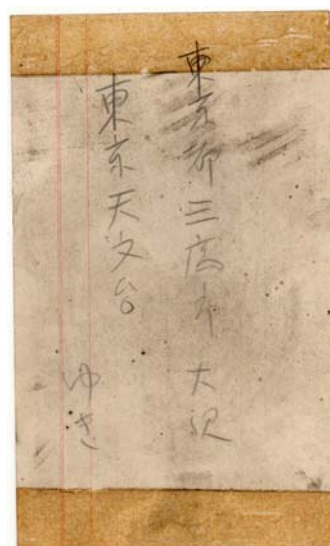 東京都三鷹市 大沢
東京天文台
ゆき